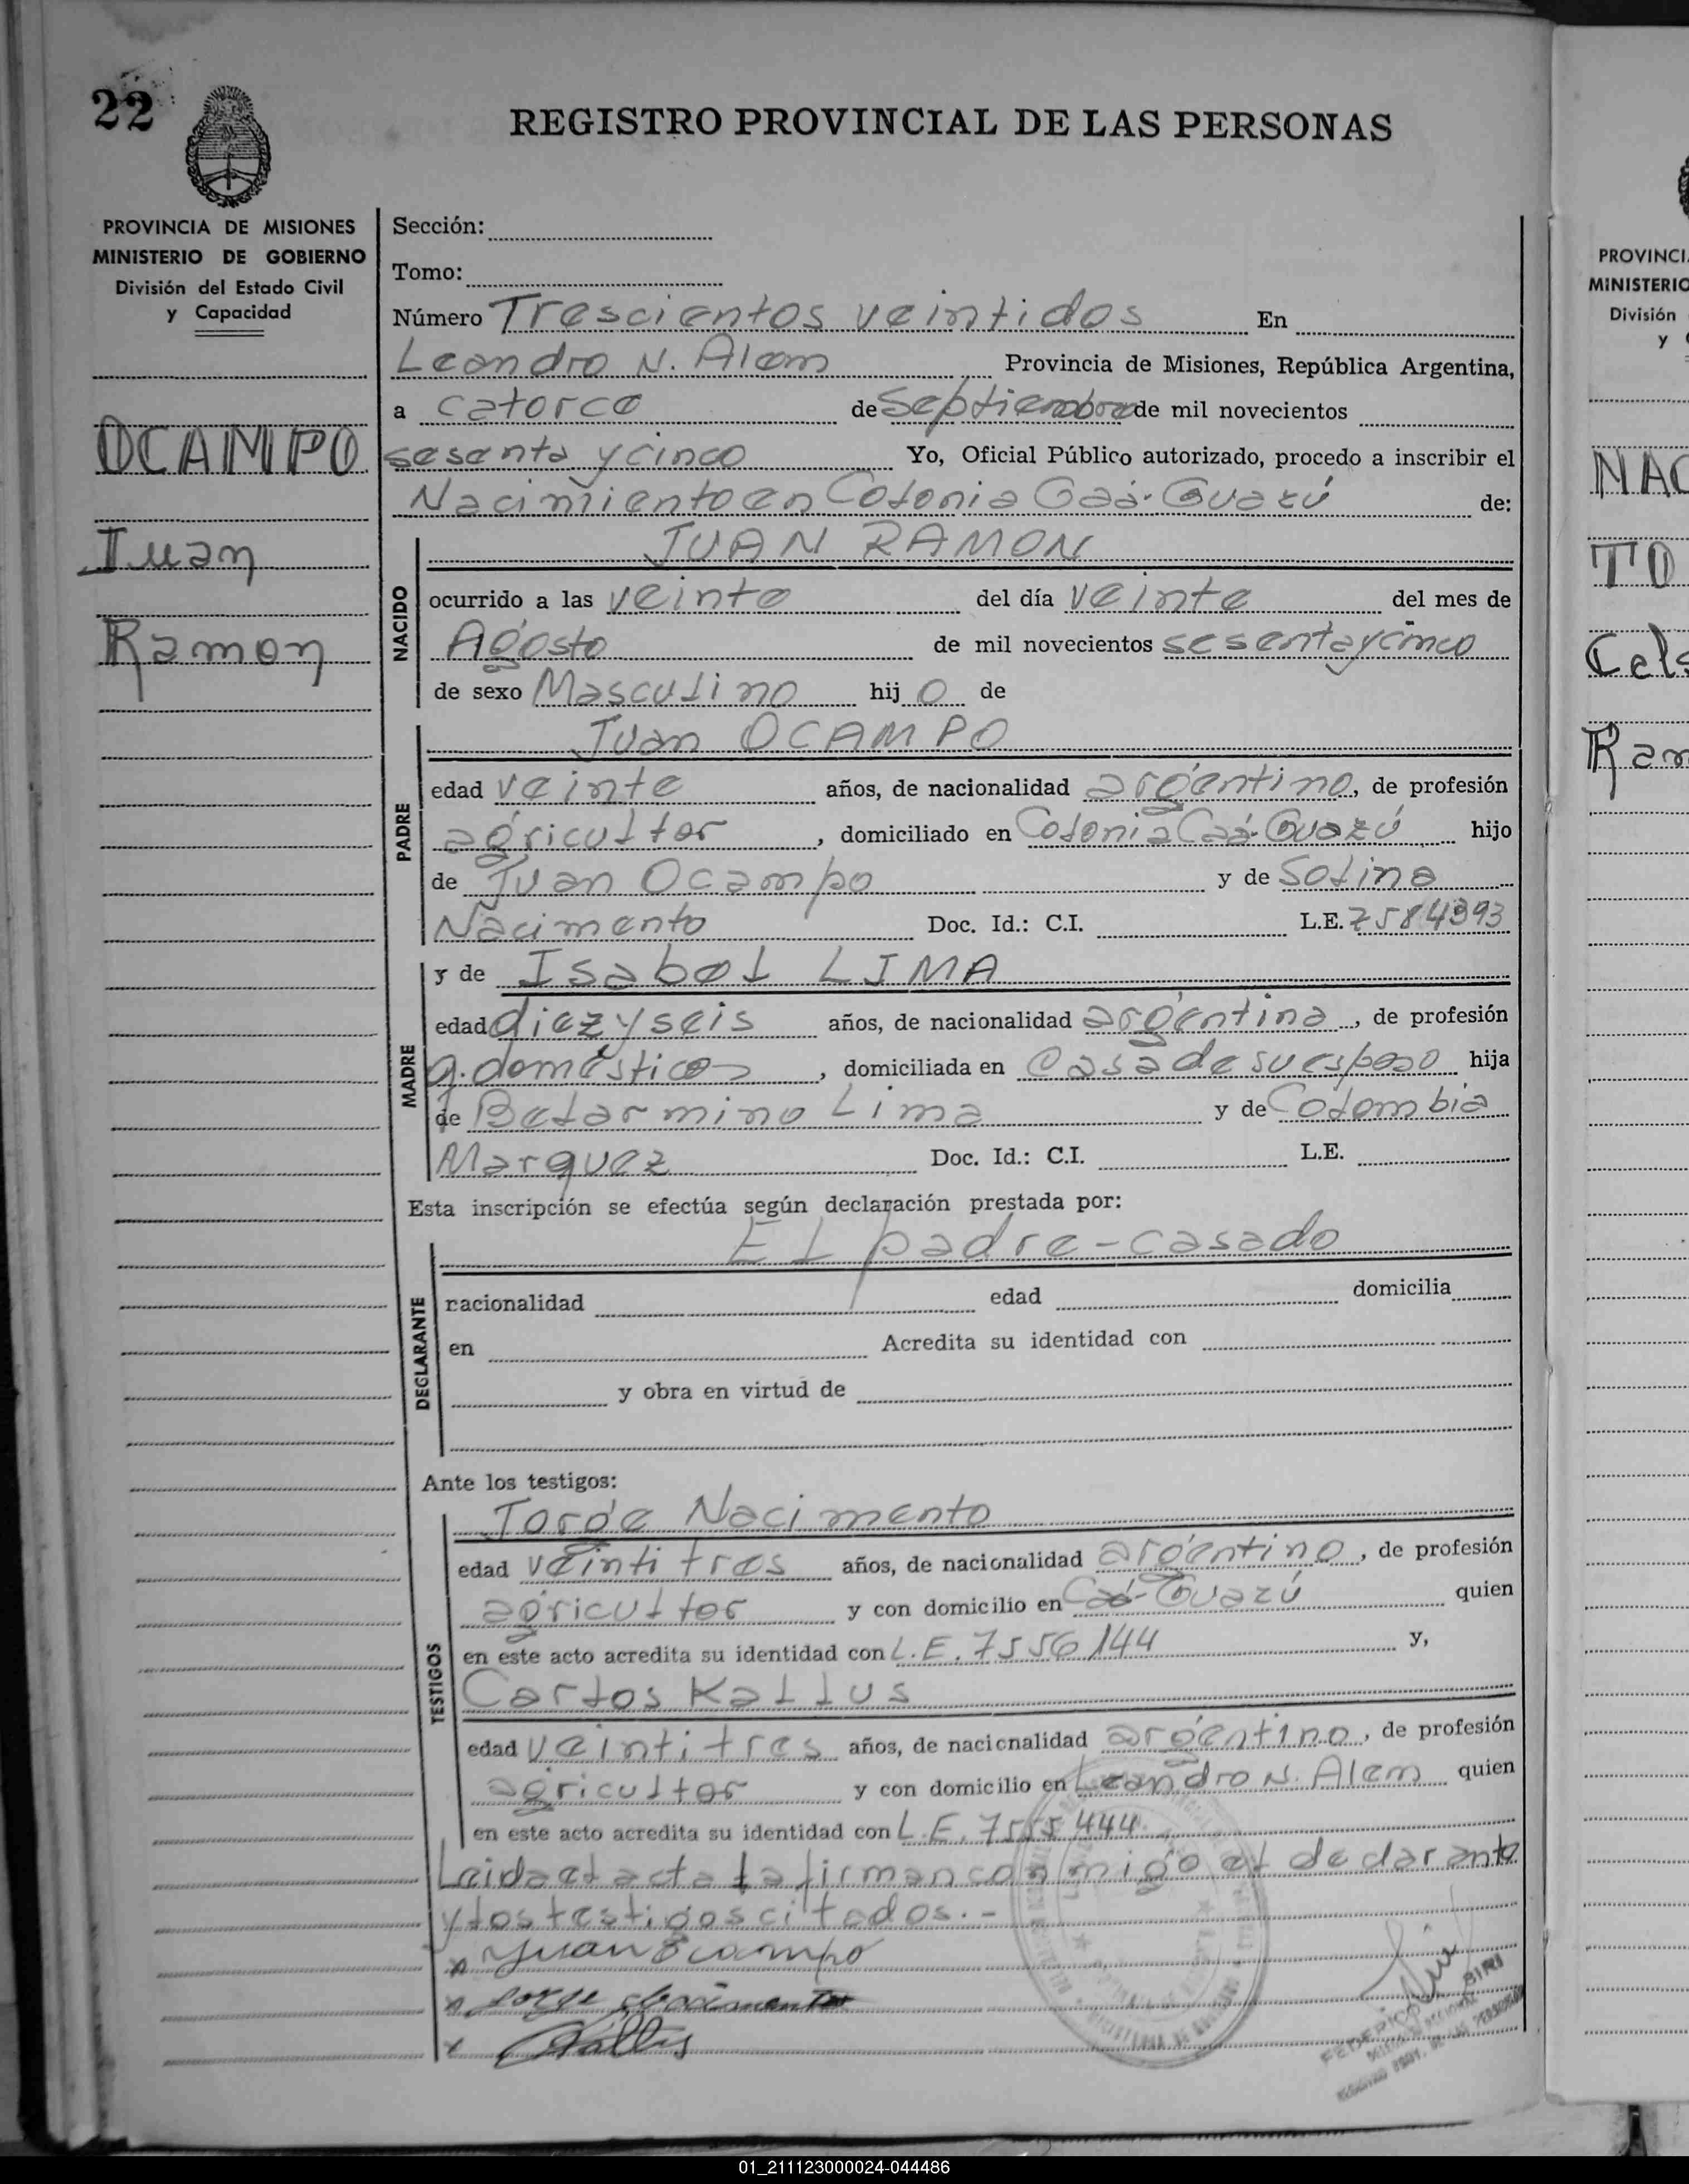 22
REGISTRO PROVINCIAL DE LAS PERSONAS
PROVINCIA DE MISIONES
MINISTERIO DE GOBIERNO
División del Estado Civil
y Capacidad
OCAMPO
Juan
Ramon
Sección:
Tomo:
Número Trescientos veintidos En
Leandro N. Alem Provincia de Misiones, República Argentina,
a catorce de Septiembre de mil novecientos
sesenta y cinco Yo, Oficial Público autorizado, procedo a inscribir el
Nacimiento en Colonia Caá-Guazú de:
JUAN RAMON
NACIDO
ocurrido a las veinte del día veinte del mes de
Agosto de mil novecientos sesenta y cinco
de sexo Masculino hij o de
Juan OCAMPO
PADRE
edad veinte años, de nacionalidad argentino, de profesión
agricultor, domiciliado en Colonia Caá-Guazú hijo
de Juan Ocampo y de Solina
Nacimento Doc. Id.: C.I. L.E. 7584393
y de Isabel LIMA
MADRE
edad diez y seis años, de nacionalidad argentina, de profesión
q. domésticos, domiciliada en Casa de su esposo hija
de Belarmino Lima y de Colombia
Marquez Doc. Id.: C.I. L.E.
Esta inscripción se efectúa según declaración prestada por:
El padre - casado
DECLARANTE
nacionalidad edad domicilia
en Acredita su identidad con
y obra en virtud de
Ante los testigos:
Jorge Nacimento
TESTIGOS
edad veinti tres años, de nacionalidad argentino, de profesión
agricultor y con domicilio en Caá-Guazú quien
en este acto acredita su identidad con L.E. 7556144 y,
Carlos Kallus
edad veintitres años, de nacionalidad argentino, de profesión
agricultor y con domicilio en Leandro N. Alem quien
en este acto acredita su identidad con L.E. 7555444
Leida el acta la firman conmigo el declarante
y los testigos citados.-
x Juan Ocampo
x Jorge Nacimento
x Kallus
FEDERICO SIRI
PROVINCI
MINISTERIO
División
y
NAC
TO
Cels
Ram
01_211123000024-044486